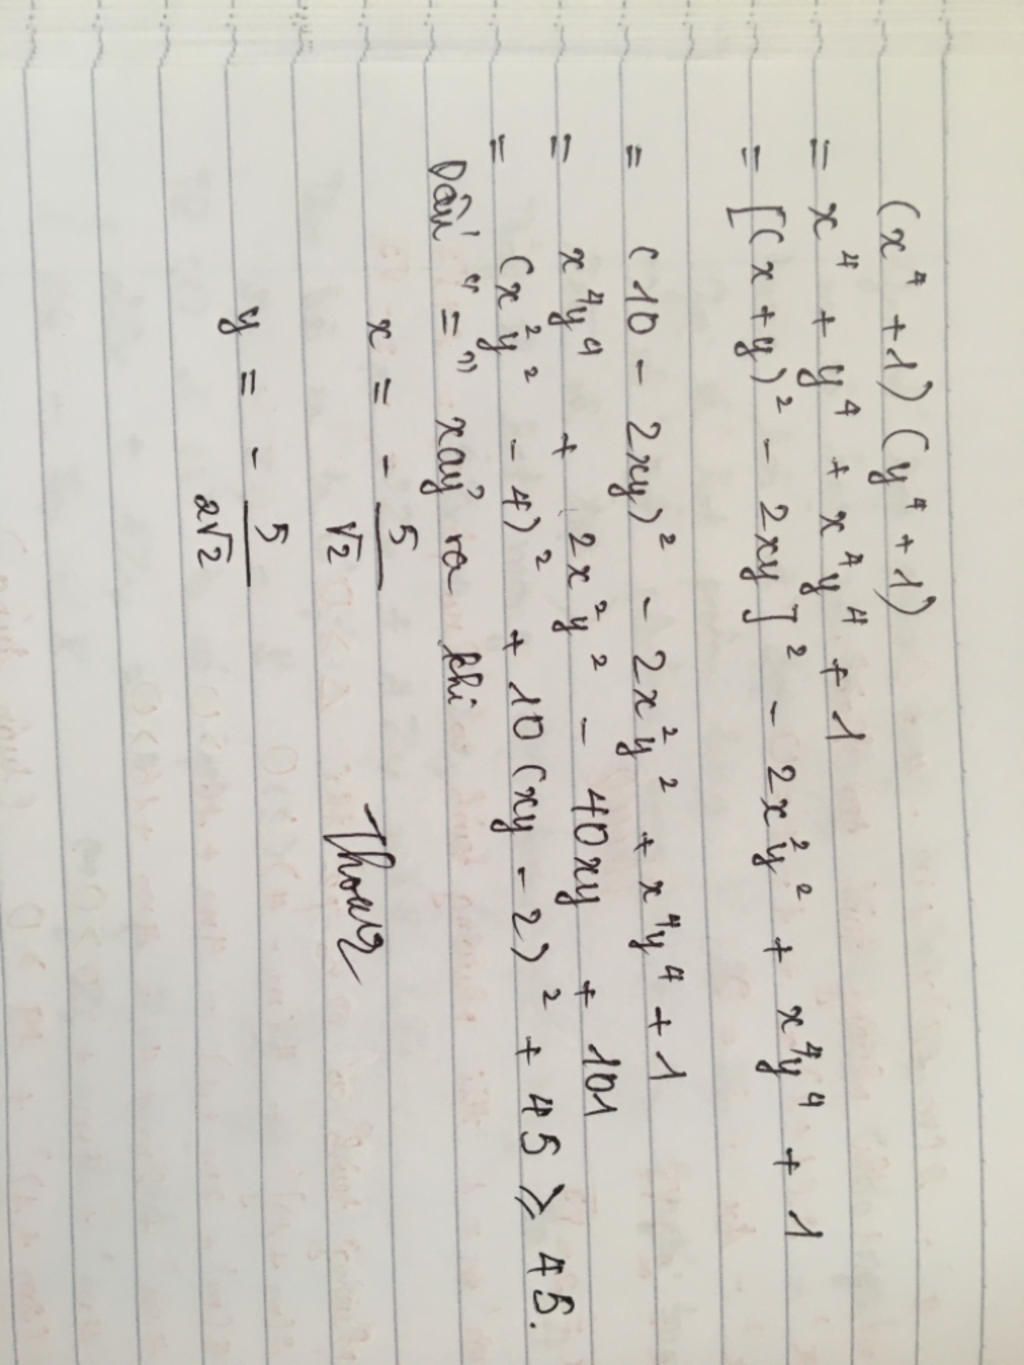 (x⁴ + 1) (y⁴ + 1)
= x⁴ + y⁴ + x⁴y⁴ + 1
= [(x + y)² - 2xy]² - 2x²y² + x⁴y⁴ + 1
= (10 - 2xy)² - 2x²y² + x⁴y⁴ + 1
= x⁴y⁴ + 2x²y² - 40xy + 101
= (x²y² - 4)² + 10(xy - 2)² + 45 ≥ 45.
Dấu "=" xảy ra khi
x = - 5/√2
y = - 5/2√2